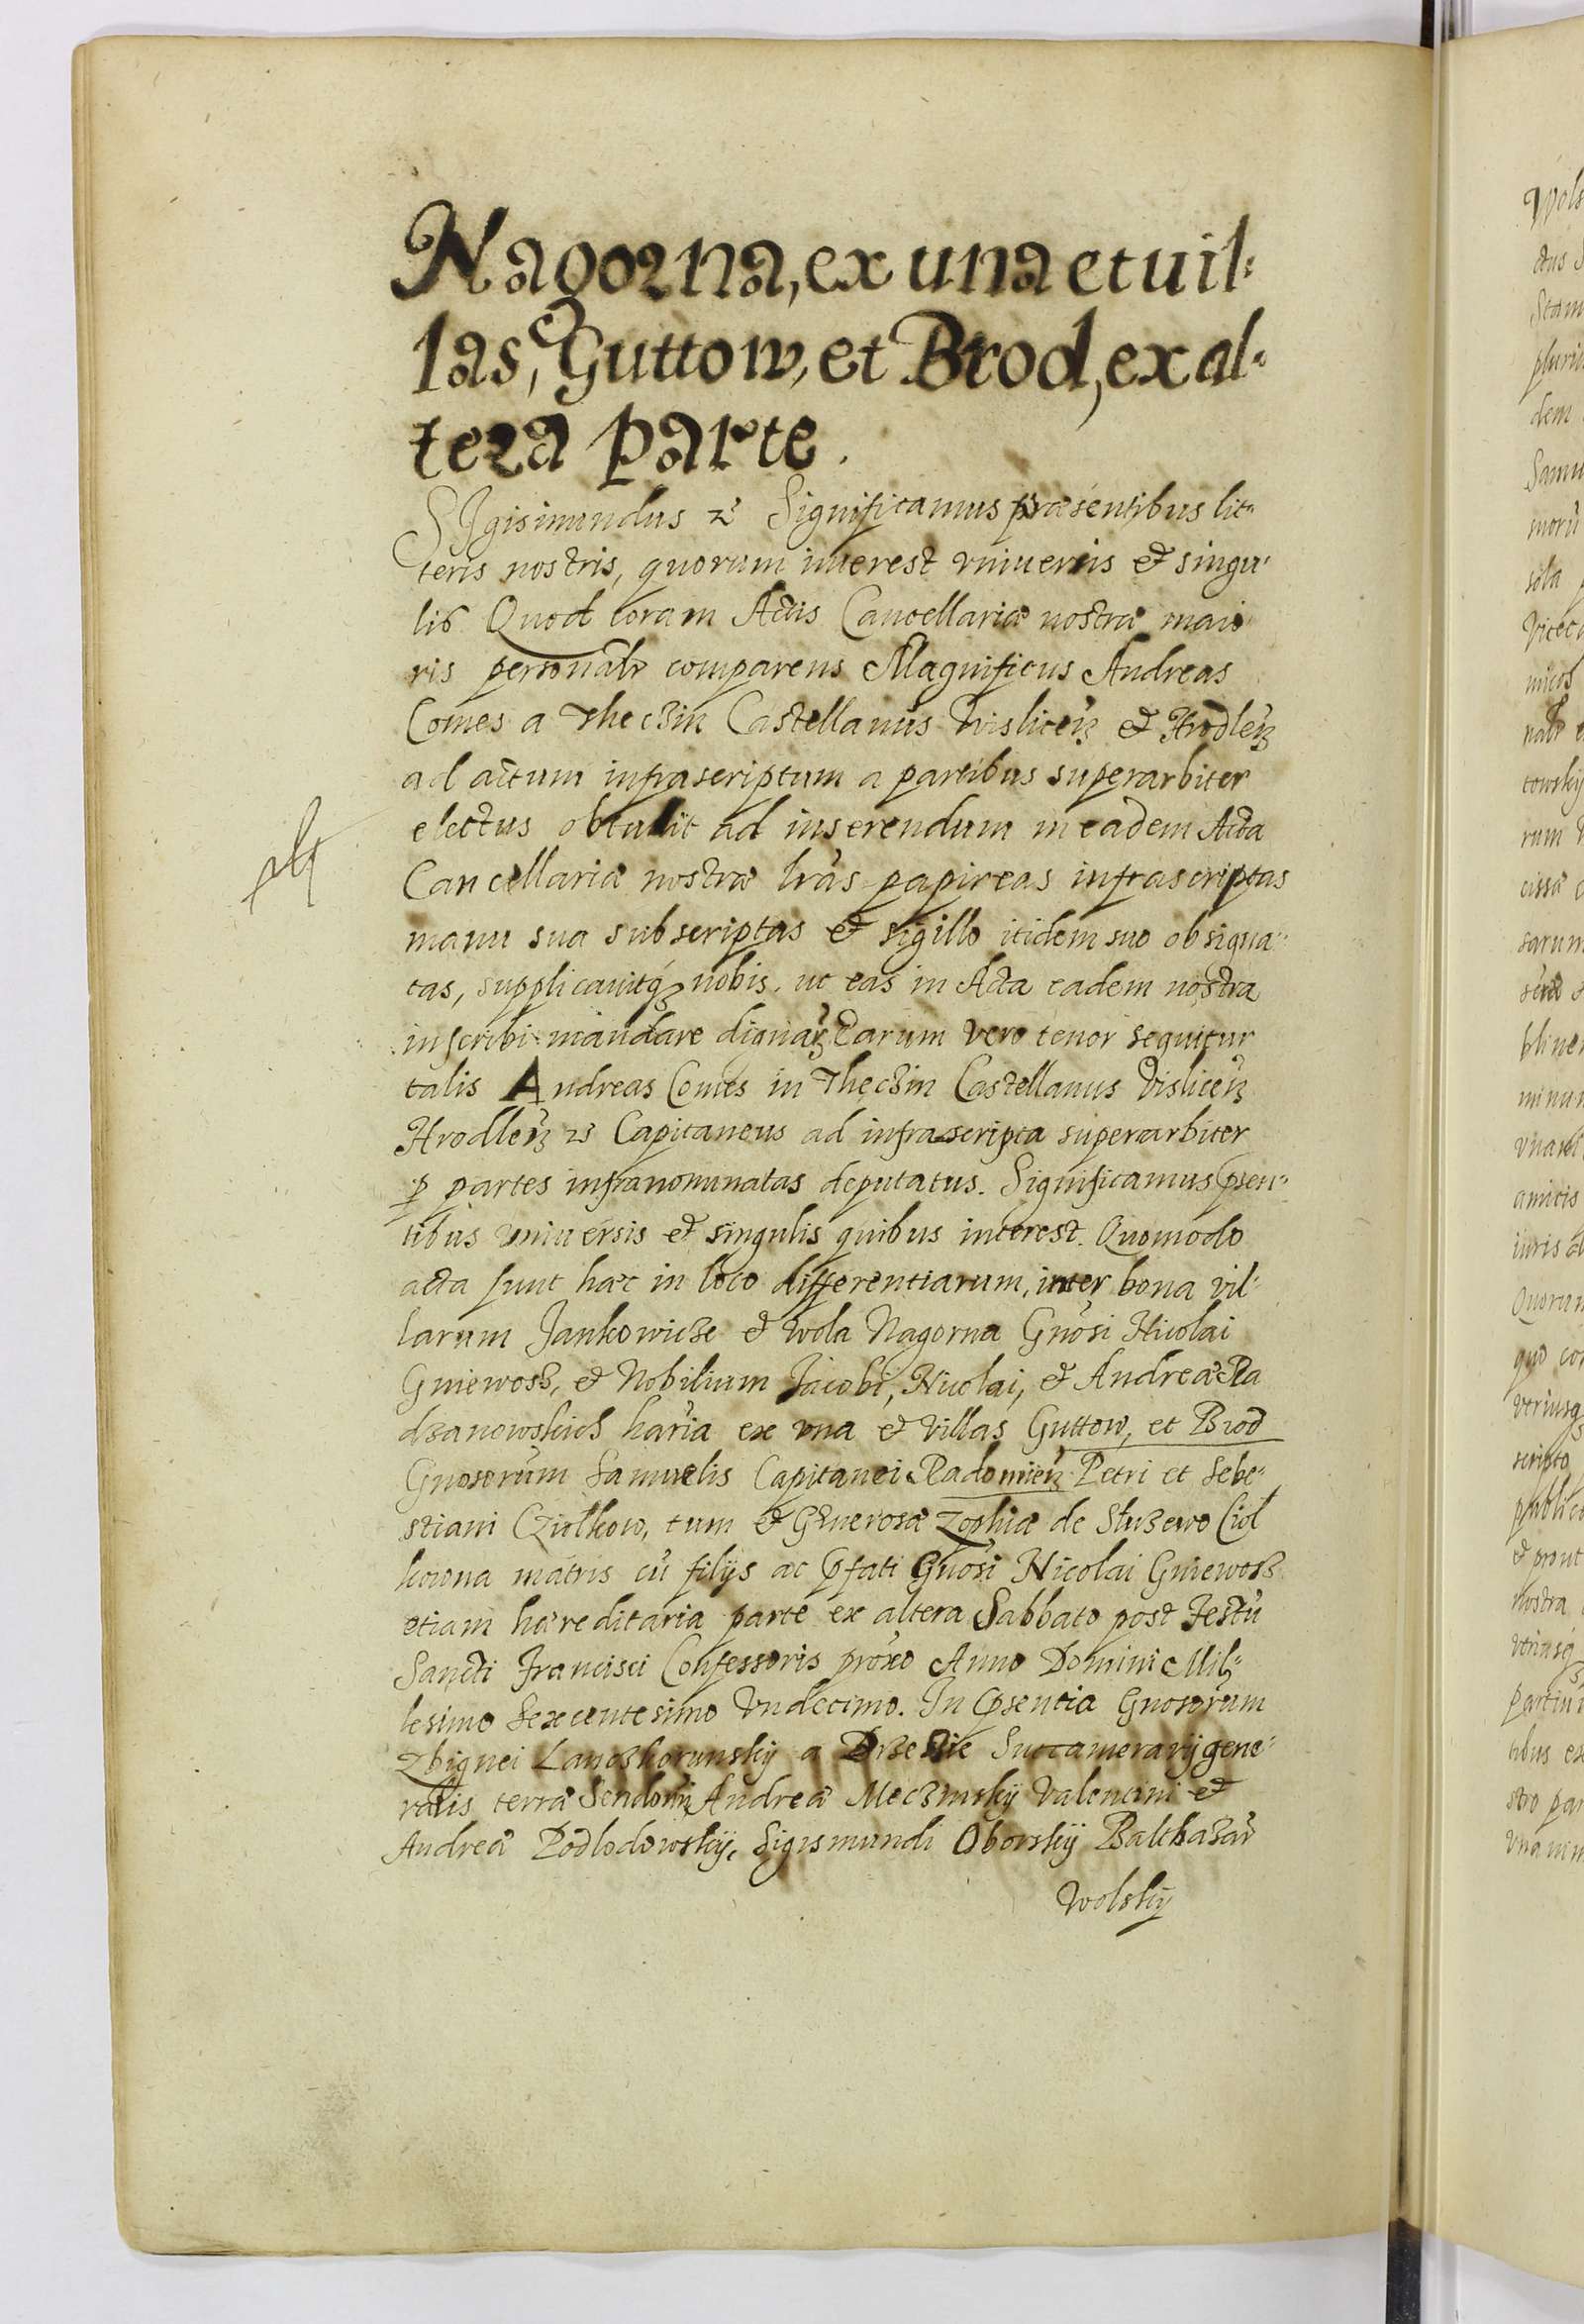 Nagorna, ex una et uil-
las, Guttow, et Brod, ex al-
tera parte.
SIgismundus zc Significamus præsentibus lit-
teris nostris, quorum interest vniuersis et singu-
lis Quod coram Actis Cancellariæ nostræ maio
ris personalr comparens Magnificus Andreas
Comes a Theczin Castellanus Wislicen et Hrodlen
ad actum infrascriptum a partibus superarbiter
electus obtulit ad inserendum in eadem Acta
Cancellariæ nostræ lras papireas infrascriptas
manu sua subscriptas et sigillo itidem suo obsigna-
tas, supplicauitq nobis, ut eas in Acta eadem nostra
inscribi mandare dignar Earum vero tenor sequitur
talis Andreas Comes in Theczin Castellanus Vislicen
Hrodlen zc Capitaneus ad infrascripta superarbiter
p partes infranominatas deputatus. Significamus psen-
tibus vniuersis et singulis quibus interest. Quomodo
acta sunt hæc in loco differentiarum, inter bona vil-
larum Jankowicze et Wola Nagorna Gnosi Nicolai
Gniewosz, et Nobilium Jacobi, Nicolai, et Andreæ Ra
dzanowskich hæria ex vna et villas Guttow, et Brod
Gnosorum Samuelis Capitanei Radomien Petri et Seba-
stiani Cziolkow, tum et Generosæ Zophiæ de Sluzewo Ciol
kowna matris cu filijs ac pfati Gnosi Nicolai Gniewosz
etiam hæreditaria parte ex altera Sabbato post Festu
Sancti Francisci Confessoris proxo Anno Domini Mil-
lesimo Sexcentesimo Vndecimo. In psentia Gnosorum
Zbignei Lanczkorunskij a Brzezie Succamerarij gene-
ralis terræ Sendomi Andreæ Meczinskij Valentini et
Andreæ Podlodowskij, Sigismundi Oborskij Balthazar
Wolskij